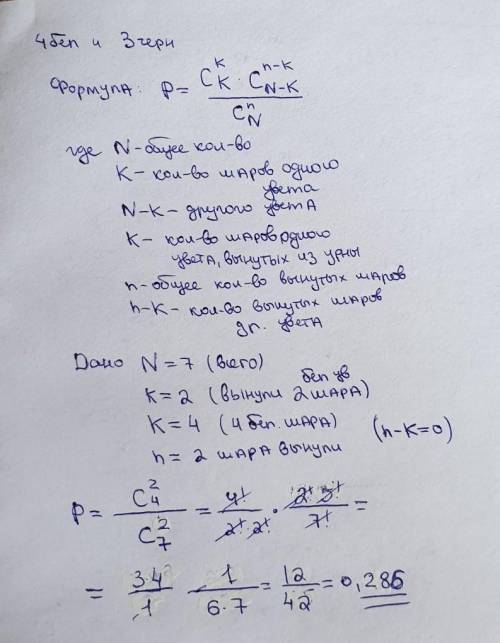 4 бел и 3 черн
Формула: P = C_K^k · C_{N-K}^{n-k} / C_N^n
где N - общее кол-во
K - кол-во шаров одного цвета
N-K - другого цвета
k - кол-во шаров одного
цвета, вынутых из урны
n - общее кол-во вынутых шаров
n-k - кол-во вынутых шаров
др. цвета
Дано N = 7 (всего)
k = 2 (вынули 2 шара) бел цв
K = 4 (4 бел. шара)
n = 2 шара вынули (n-k=0)
P = C_4^2 / C_7^2 = 4! / 2! 2! · 2! 5! / 7! =
= 3·4 / 1 1 / 6·7 = 12 / 42 = 0,286